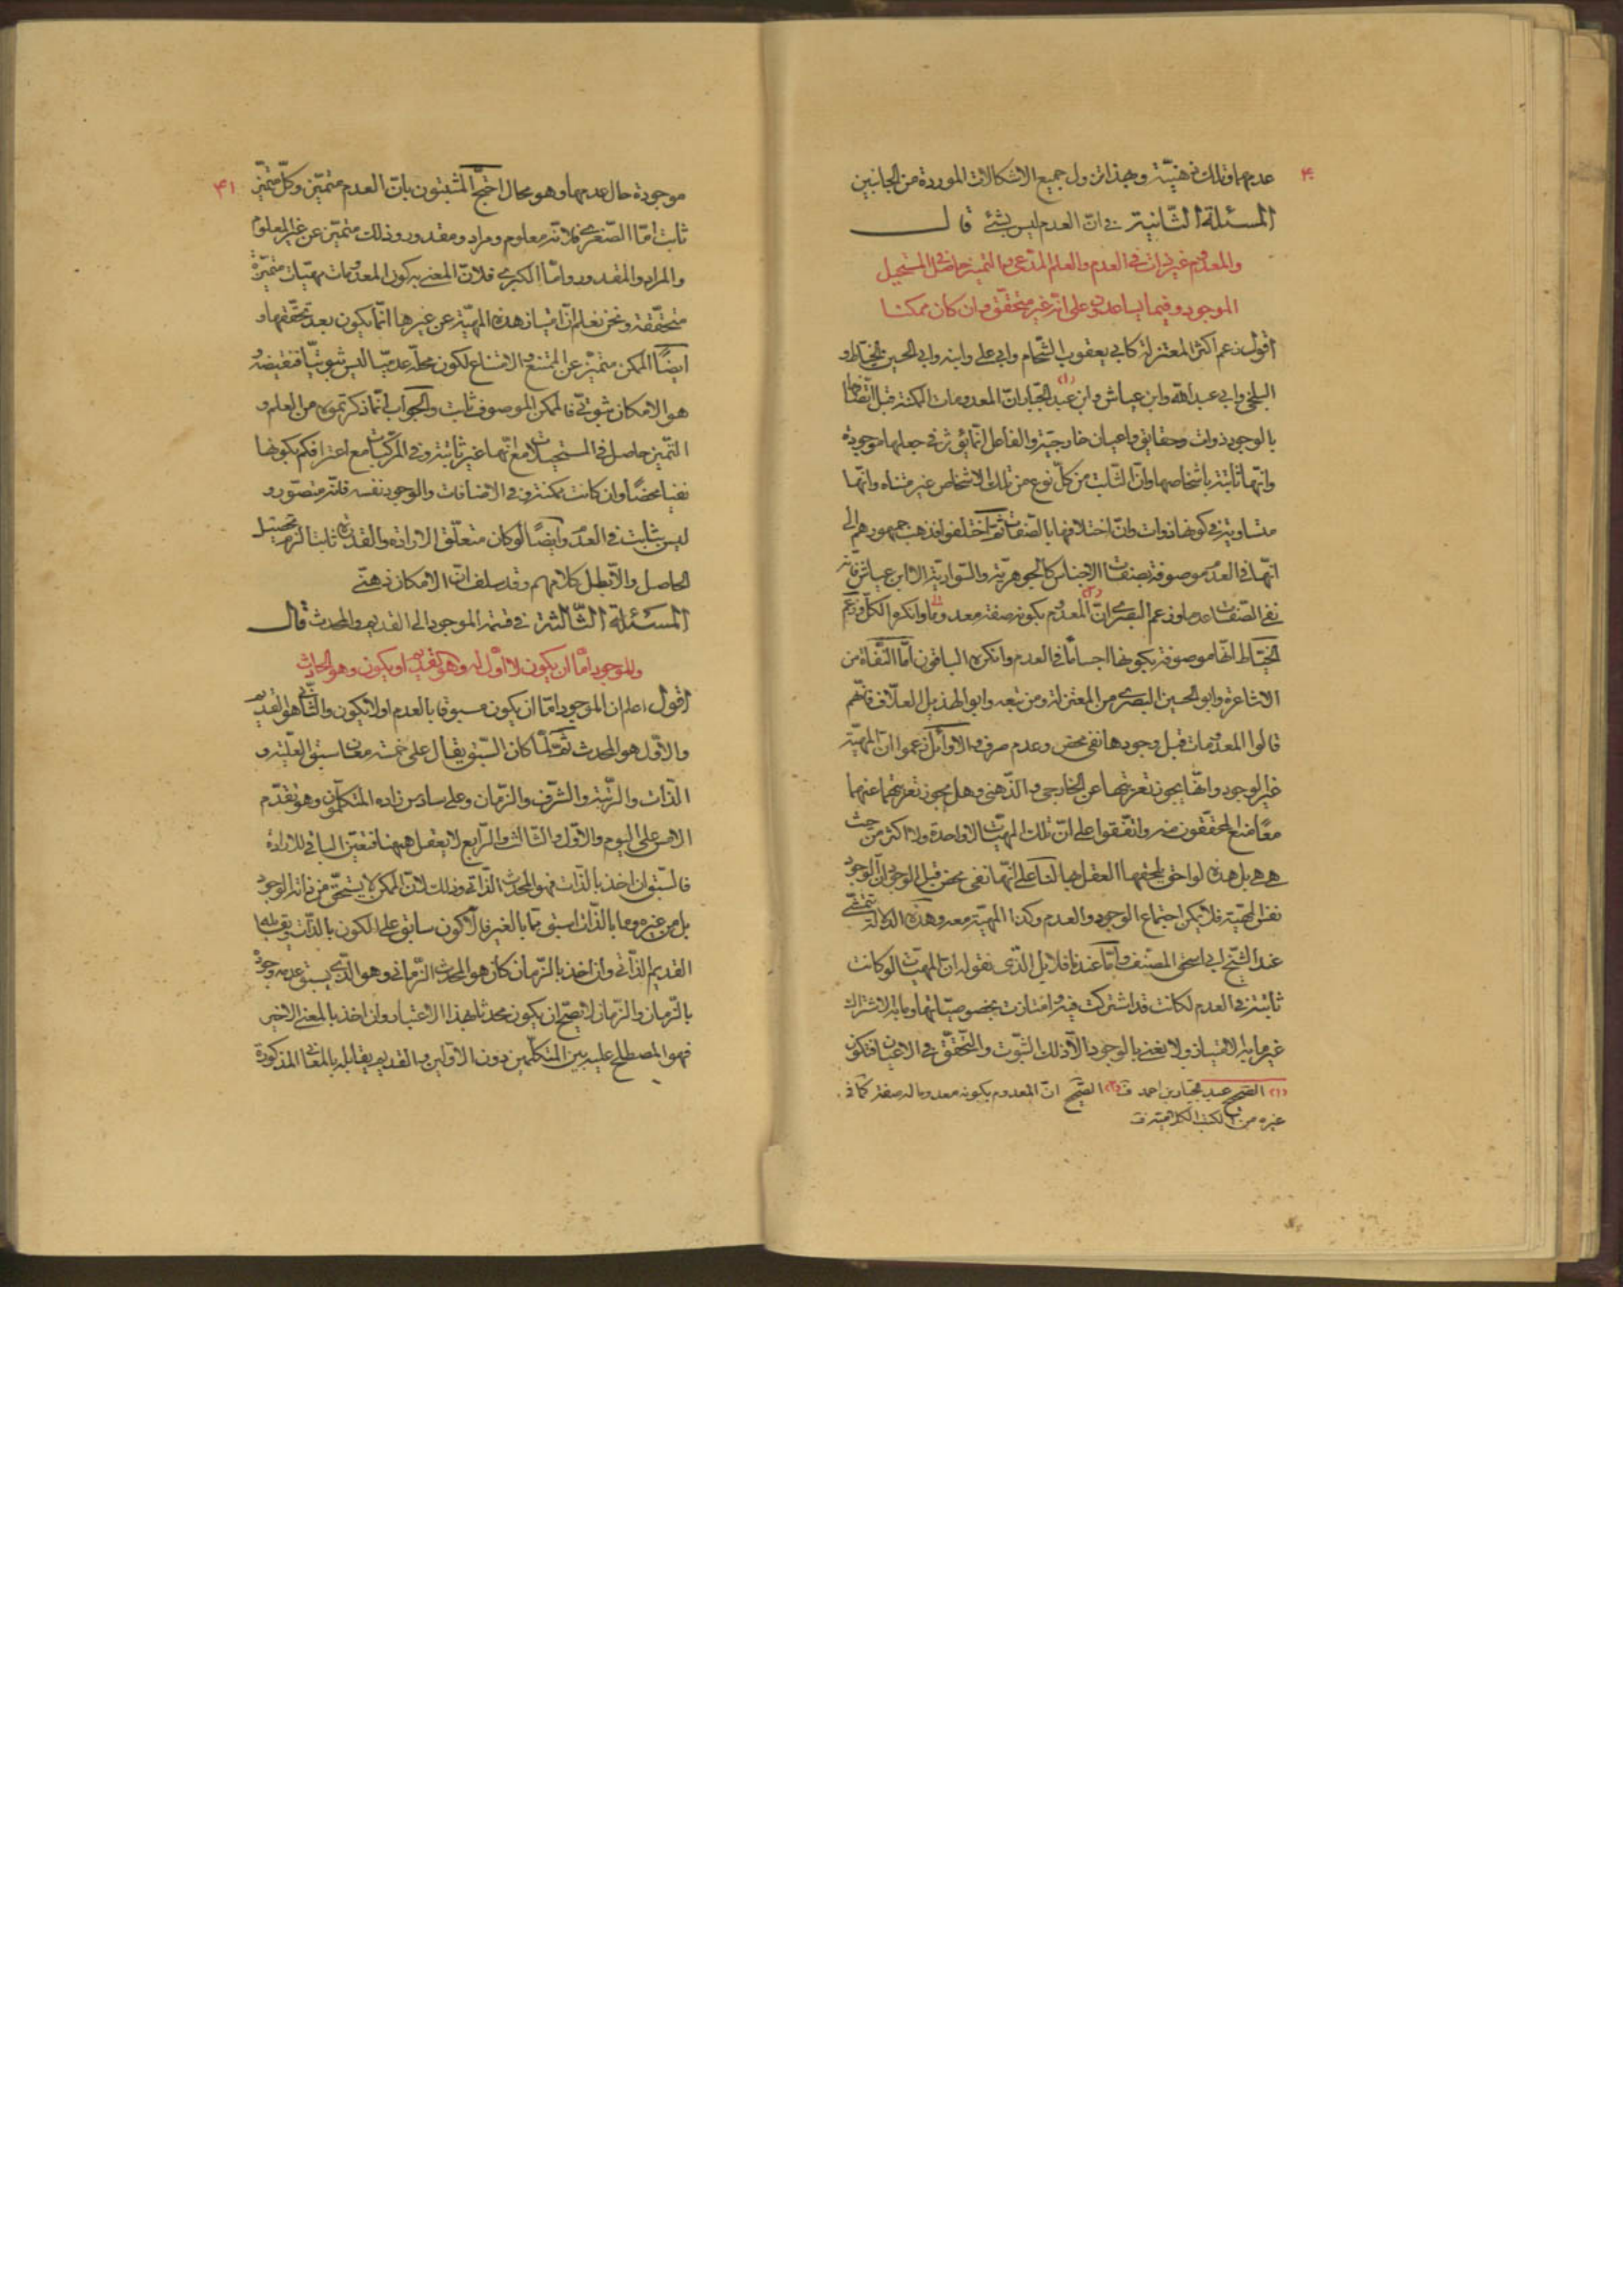 ۴۰
عدمها وتلك ذهنيّة وبهذا تزول جميع الاشكالات الموردة من الجانبين
المسئلة الثّانية فى انّ العدم ليس بشئ قال
والمعدوم غير ذات فى العدم والعلم المدّعى والتميز حاصل فى المستحيل
الموجود وفيما يساعدون على انّه غير متحقّق وان كان ممكنا
اقول زعم اكثر المعتزلة كابى يعقوب الشّحام وابى على وابنه وابى الحسين الخيّاط و
البلخى وابى عبد الله وابن عياش وابن عبد الجبّار (١) انّ المعدومات الممكنة قبل اتّصافها
بالوجود ذوات وحقايق واعيان خارجيّة والفاعل انّما يؤثر فى جعلها موجودة
وانّها ثابتة باشخاصها وانّ الثّابت من كلّ نوع من تلك الاشخاص غير متناه وانّها
متساوية فى كونها ذوات وانّ اختلافها بالصّفات ثمّ اختلفوا فذهب جمهورهم الى
انّها فى العدم موصوفة بصفات الاجناس كالجوهريّة والسّواديّة الا ابن عياش فانّه
نفى الصّفات عدما وزعم البصرى انّ (٢) المعدوم بكونه صفة معدوما وانكره الكلّ وزعم
الخيّاط انّها موصوفة بكونها اجساما فى العدم وانكره الباقون امّا النّفاة من
الاشاعرة وابو الحسين البصرى من المعتزلة ومن تبعه وابو الهذيل العلّاف فانّهم
قالوا المعدومات قبل وجودها نفى محض وعدم صرف والاوائل زعموا انّ المهيّة
غير الوجود وانّها يجوز تعريتها عن الخارجى والذّهنى وهل يجوز تعريتها عنهما
معًا منع المحقّقون منه واتّفقوا على انّ تلك المهيّات لا واحدة ولا اكثر من حيث
هى هى بل هذه لواحق يلحقها العقل بها لنا على انّها نفى محض قبل الوجود انّ الوجود
نفس المهيّة فلا يمكن اجتماع الوجود والعدم وكذا المهيّة معه وهذه الدلالة تتمشّى
عند الشّيخ ابى اسحق المصنّف وامّا عندنا فلا بل الّذى نقوله ان المهيّات لو كانت
ثابتة فى العدم لكانت قد اشتركت فيه وامتازت بخصوصيّاتها وما به الاشتراك
غير ما به الامتياز ولا نعنى بالوجود الّا ذلك الثّبوت والتّحقّق فى الاعيان فتكون
(١) الصّحيح عبد الجبّار بن احمد ف (٢) الصّحيح انّ المعدوم بكونه معدوما له صفة كما فى
غيره من الكتب الكلاميّة ف
۴١
موجودة حال عدمها وهو محال احتجّ المثبتون بانّ العدم متميّز وكلّ متميّز
ثابت امّا الصّغرى فلانّه معلوم ومراد ومقدور وذلك متميّز عن غير المعلوم
والمراد والمقدور وامّا الكبرى فلانّ المعنى بكون المعدومات مهيّات متميّزة
متحقّقة ونحن نعلم انّ امتياز هذه المهيّة عن غيرها انّما يكون بعد تحقّقها و
ايضًا الممكن متميّز عن الممتنع والامتناع لكون محلّه عدميّا ليس ثبوتيّا فنقيضه
هو الامكان ثبوتىّ فالممكن الموصوف ثابت والجواب انّ ما ذكرتموه من العلم و
التّميز حاصل فى المستحيلات مع انّها غير ثابتة وفى المركّبات مع اعترافكم بكونها
نفيا محضًا وان كانت ممكنة وفى الاضافات والوجود نفسه فانّه متصوّر و
ليس بثابت فى العدم وايضًا لو كان متعلّق الارادة والقدرة ثابتا لزم تحصيل
الحاصل والّا بطل كلامهم وقد سلف انّ الامكان ذهنىّ
المسئلة الثّالثة فى قسمة الموجود الى القديم والمحدث قال
والموجود امّا ان يكون لا اوّل له وهو القديم او يكون وهو الحادث
اقول اعلم ان الموجود امّا ان يكون مسبوقا بالعدم او لا يكون والثّانى هو القديم
والاوّل هو المحدث ثمّ لمّا كان السّبق يقال على خمسة معان سبق العلّية و
الذّات والرّتبة والشّرف والزّمان وعلى سادس زاده المتكلّمون وهو تقدّم
الامس على اليوم والاوّل والثّالث والرّابع لا يعقل ههنا فتعيّن الباقى للارادة
فالسّبق ان اخذ بالذّات فهو المحدث الذّاتى وذلك لانّ الممكن لا يستحقّ من ذاته الوجود
بل من غيره وما بالذّات اسبق ممّا بالغير فاللّاكون سابق على الكون بالذّات ويقابله
القديم الذّاتى وان اخذ بالزّمان كان هو المحدث الزّمانى وهو الّذى يسبق عدمه وجوده
بالزّمان والزّمان لا يصحّ ان يكون محدثا بهذا الاعتبار وان اخذ بالمعنى الاخير
فهو المصطلح عليه بين المتكلّمين دون الاوّلين والقديم يقابله بالمعانى المذكورة